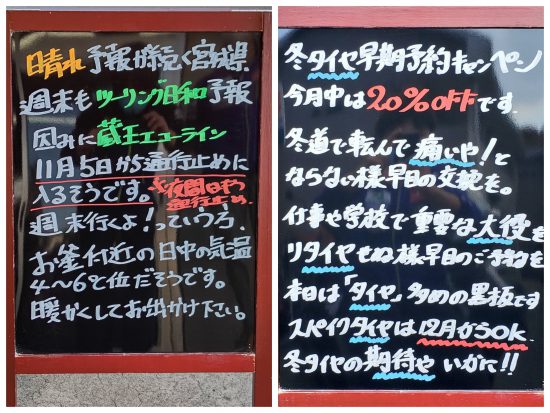 晴れ予報が続く宮城県
週末もツーリング日和予報
因みに蔵王エコーライン
11月5日から通行止めに
入るそうです。
※夜間は今も
通行止め。
週末行くよ!っていう方
お釜付近の日中の気温
4〜6℃位だそうです。
暖かくしてお出かけ下さい。
冬タイヤ早期予約キャンペーン
今月中は20%OFFです。
冬道で転んで痛いや!と
ならない様早目の交換を。
仕事や学校で重要な大役を
リタイヤせぬ様早目のご予約を
本日は「タイヤ」多めの黒板です
スパイクタイヤは12月からOK.
冬タイヤの期待や いかに!!